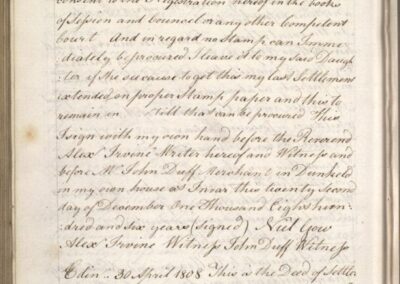 consent to the Registration hereof in the books
of Session and Councel or any other Competent
Court And in regard no Stamp can Imme
diately be procured I leave it to my said Daugh
ter if She see cause to get this my last Settlement
extended on proper Stamp paper and this to
remain in Till that can be procured This
I sign with my own hand before the Reverend
Alexr. Irvine Writer hereof and Witness and
before Mr. John Duff Merchant in Dunkeld
in my own house at Inver this twenty Second
day of December One Thousand Eight hun
dred and six years (signed) Niel Gow
Alexr Irvine Witness John Duff Witness
Edinr. 30 April 1808 This is the Deed of Settle